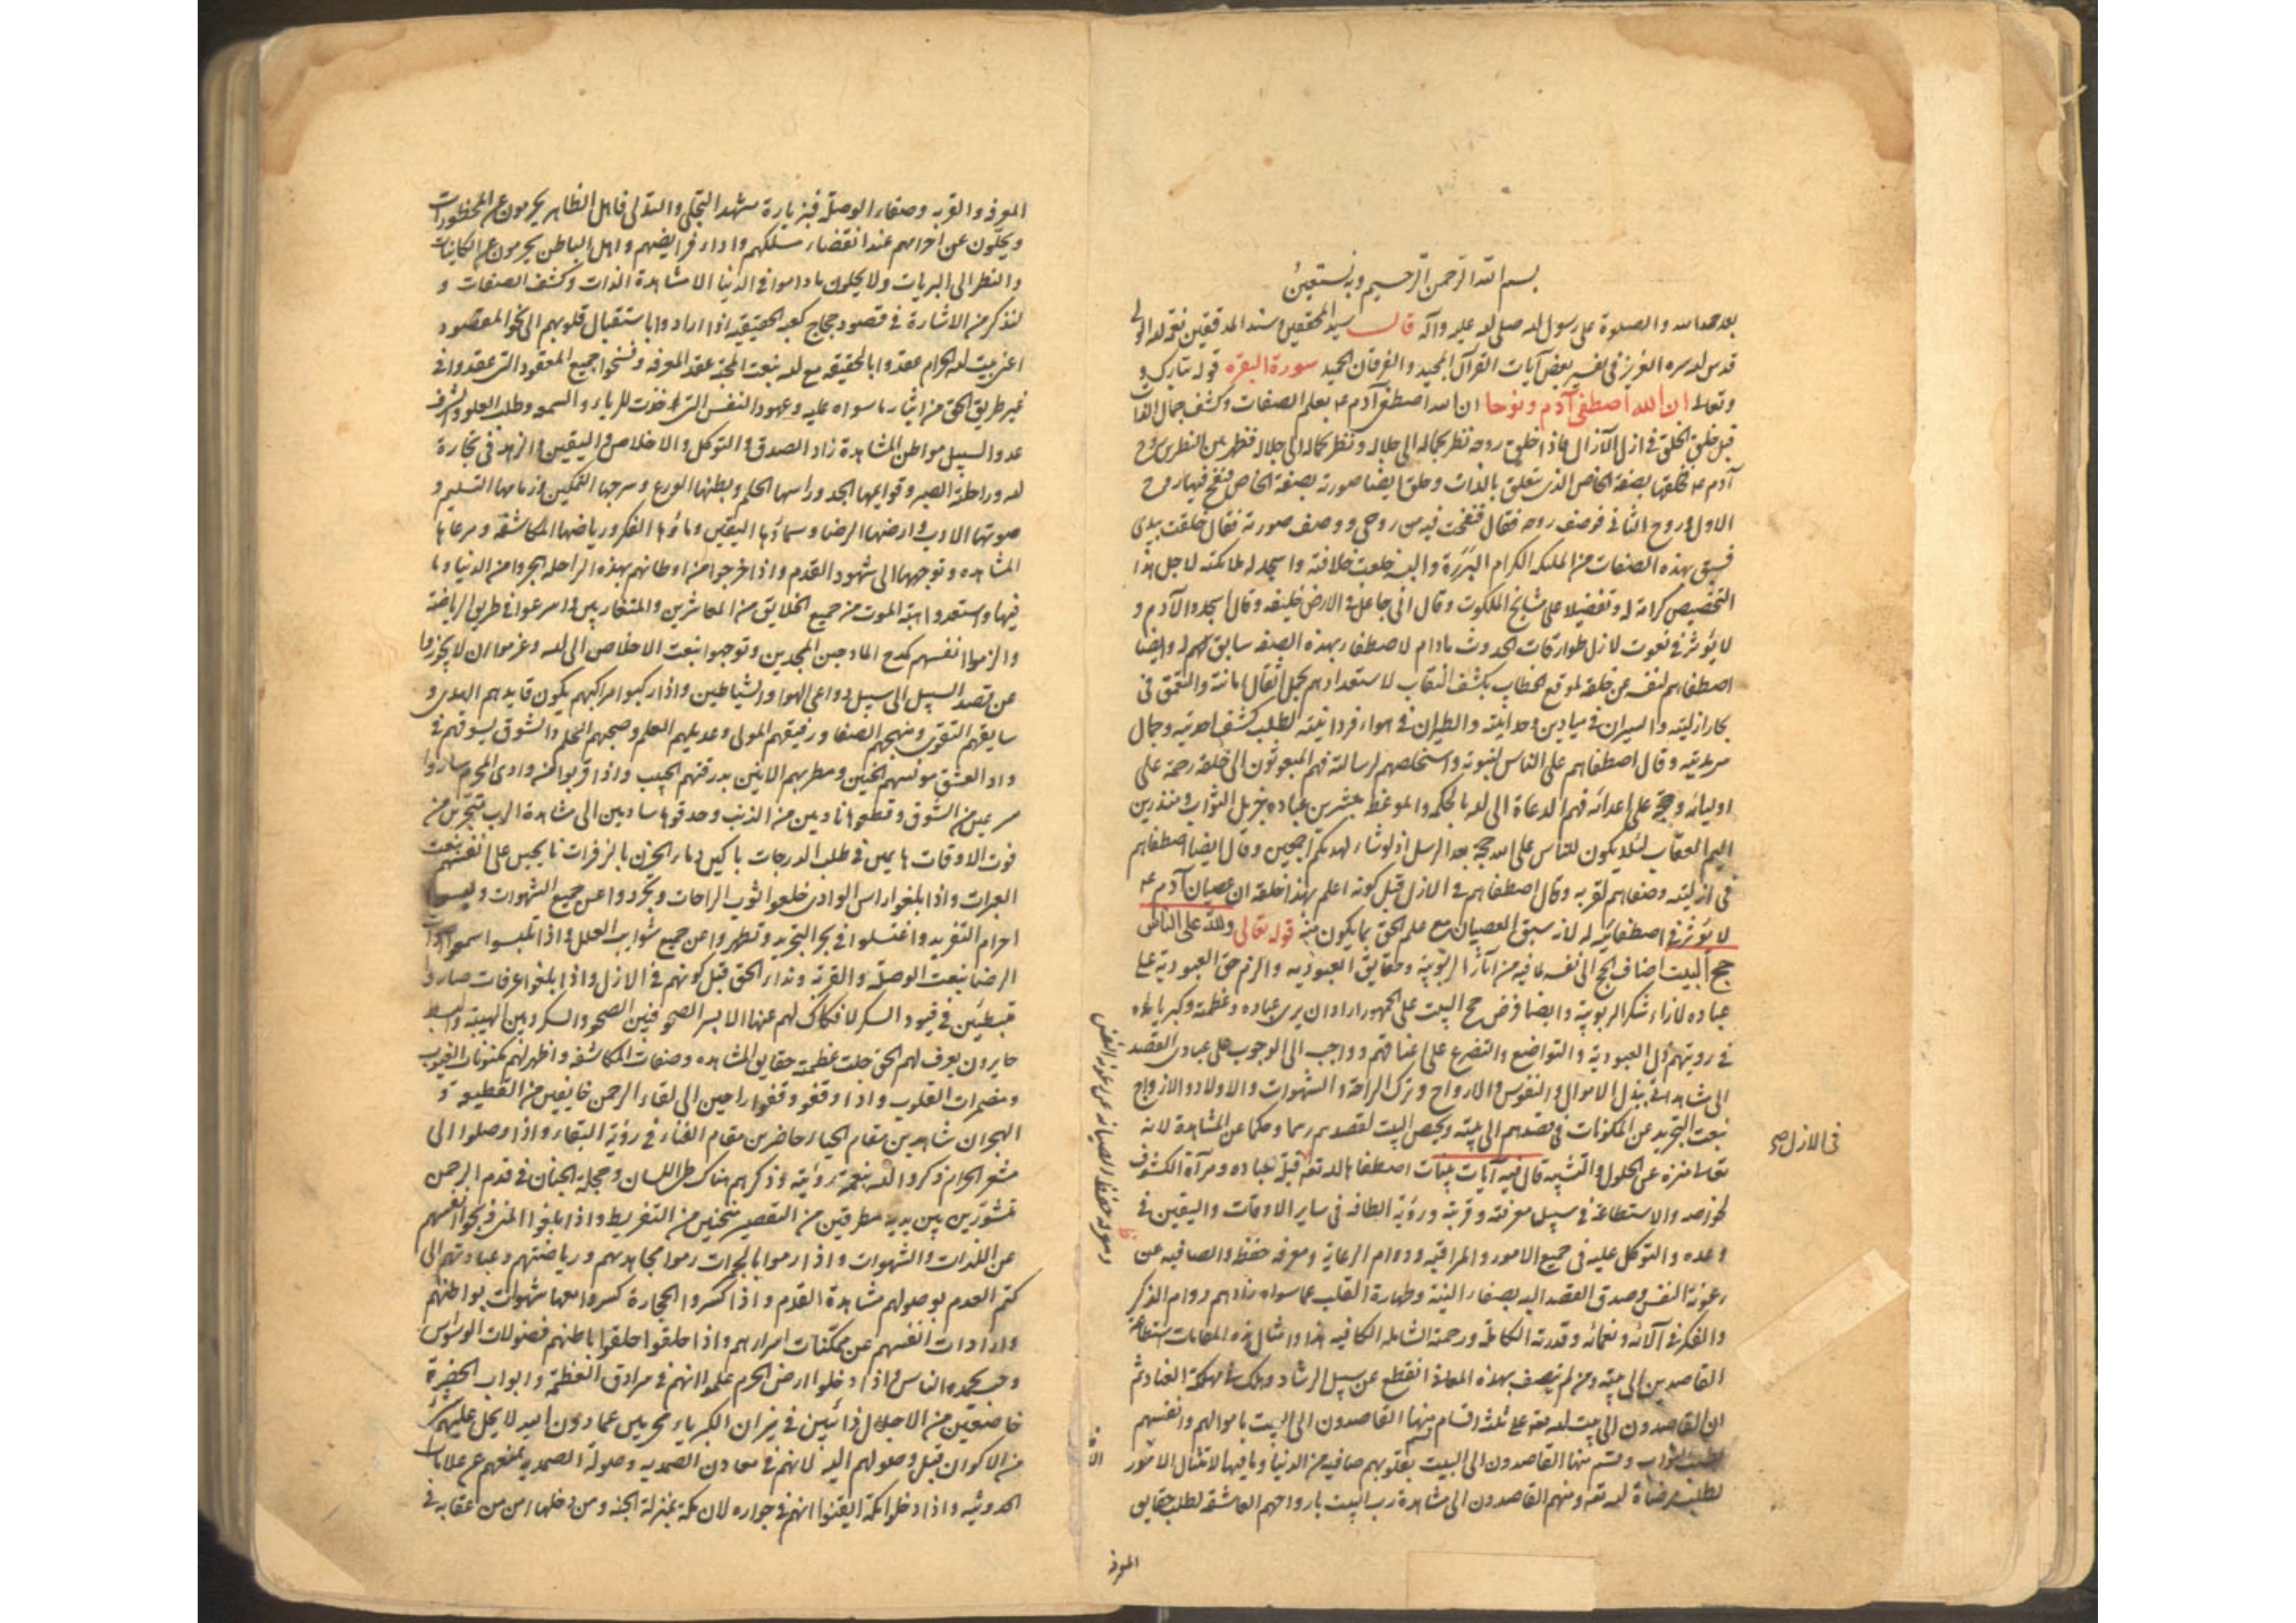 بسم الله الرحمن الرحيم وبه نستعين
بعد حمد الله والصلوة على رسول الله صلى الله عليه وآله قال سيد المحققين سند المدققين
قدس الله سره العزيز في تفسير بعض آيات القرآن المجيد والفرقان الحميد سورة البقره قوله تبارك و
وتعالى ان الله اصطفى آدم ونوحا ان الله اصطفى آدم عم بعلم الصفات وكشف جمال الذات
قبل خلق الخلق في ازل الآزال فاذا خلق روحه نظر بجماله الى جلاله ونظر بجماله الى جلاله فظهر من النظرين روح
آدم عم فخلقها بصفة الخاص الذى تتعلق بالذات وخلق ايضا صورته بصفة الخاص فنفخ فيها روح
الاول وروح الثانى فوصف روحه فقال فنفخت فيه من روحى ووصف صورته فقال خلقت بيدى
فسبق بهذه الصفات من الملئكه الكرام البررة والبسه خلعت خلافته واسجد له ملائكته لاجل هذا
التخصيص كرامة له وتفضيلا على مشايخ الملكوت وقال انى جاعل فى الارض خليفه وقال اسجدوا لآدم و
لا يؤثر فى نعوت لازل طوارقات الحدوث مادام لاصطفاء بهذه الصفه سابق لهم وايضا
اصطفاهم لنفسه عن خلقه لموقع الخطاب بكشف النقاب لاستعدادهم بحمل اثقال امانته والتعمق فى
بحار ازليته والسيران فى ميادين وحدانيته والطيران فى هواء فردانيته لطلب كشف احديته وجمال
سرمديته وقال اصطفاهم على الناس لنبوته واستخلصهم لرسالته فهم المبعوثون الى خلقه رحمة على
اوليائه وحجة على اعدائه فهم الدعاة الى الله بالحكمه والموعظه مبشرين عباده بجزيل الثواب ومنذرين
اليم العقاب لئلا يكون للناس على الله حجة بعد الرسل اذ لو شاء لهديكم اجمعين وقال ايضا اصطفاهم
فى ازليته وصفاهم لقربه وقال اصطفاهم فى الازل قبل كونه اعلم بهذا خلقه ان عصيان آدم عم
لا يؤثر فى اصطفائيه له لانه سبق العصيان مع علم الحق بما يكون منه قوله تعالى ولله على الناس
حج البيت اضاف الحج الى نفسه لما فيه من آثار الربوبية وحقايق العبوديه والزم حق العبودية على
عباده لازاء شكر الربوبية وايضا فرض حج البيت على الجمهور اراد ان يرى عباده وعظمته وكبريائه
فى رويتهم ذل العبودية والتواضع والتضرع على اعناقهم وواجب الى الوجوب على عبادى القصد
الى مشاهدتى ببذل الاموال والنفوس والارواح وترك الراحة والشهوات والاولاد والازواج
بنعت التجريد عن المكونات فى قصدهم الى بيته وتخصص البيت لقصدهم رسما وحكما عن المشاهدة لانه
تعالى منزه عن الحلول والتشبيه قال فيه آيات بينات اصطفاها الله تعه قبلة لعباده ومرآة الكشوف
لخواصه والاستطاعة فى سبيل معرفته وقربة ورؤية الطافه فى ساير الاوقات واليقين فى
وعده والتوكل عليه فى جميع الامور والمراقبه ودوام الرعاية ومعرفه حفظ والصافيه عن
رعونة النفس وصدق القصد اليه بصفاء النية وطهارة القلب عما سواه زادهم دوام الذكر
والفكر فى آلائه ونعمائه وقدرته الكاملة ورحمته الشامله الكافيه هذا وامثال هذه المقامات استطاعة
القاصدين الى بيته ومن لم يتصف بهذه المعانى انقطع عن سبيل الرشاد وهلك فى مهلكة العناد ثم
ان القاصدون الى بيت الله تعه على ثلث اقسام منها القاصدون الى البيت باموالهم وانفسهم
لطلب الثواب وقسم منها القاصدون الى البيت بقلوبهم صافيه من الدنيا وما فيها لامتثال الامور
لطلب مرضاة الله تعه ومنهم القاصدون الى مشاهدة رب البيت بارواحهم العاشقه لطلب حقايق
المعرفه
فى الازل صح
ومعرفه حفظ الصيانه عن رعونة النفس
المعرفه والقربه وصفاء الوصلة فبزيارة مشهد التجلى والتدلى فاهل الظاهر يحرمون عن المحظورات
ويحلون عن احرامهم عند انقضاء مسلكهم واداء فرايضهم واهل الباطن يحرمون عن الكاينات
والنظر الى البريات ولا يحلون ماداموا فى الدنيا الا مشاهدة الذات وكشف الصفات و
لنذكر من الاشارة فى قصود حجاج كعبه الحقيقيه اذا ارادوا باستقبال قلوبهم الى نحو المقصود
اعنى بيت الله الحرام عقدوا بالحقيقه مع الله بنعت المحبة عقد المعرفه وفسخوا جميع العقود التى عقدوا فى
غير طريق الحق من ايثار ما سواه عليه وعهود النفس التى اخذت للرياء والسمعه وطلب العلو والشرف
عدوا السبيل مواطن المشاهدة زاد الصدق والتوكل والاخلاص واليقين والزهد فى تجارة
الله وراحلة الصبر وقوايمها الجد وراسها الحلم وبطنها الورع وسرجها التمكين وزمامها التسليم و
صوتها الادب وارضها الرضا وسماؤها اليقين وماؤها الفكر ورياضها المكاشفة ومرعاها
المشاهده وتوجهها الى شهود القدم واذا خرجوا من اوطانهم بهذه الراحله هجروا من الدنيا وما
فيها واستعدوا اهبة الموت من جميع الخلايق من المعاشرين والمتقاربين واسرعوا فى طريق الرياضة
والزموا انفسهم كدح المادحين المجدين وتوجهوا بنعت الاخلاص الى الله وعزموا ان لا يحوروا
عن قصد السبيل الى سبيل دواعى الهوا والشياطين واذا ركبوا مراكبهم يكون قايدهم الهدى و
سايقهم التقوى ومنهجهم الصفا ورفيقهم المولى وعديلهم العلم وصحبهم الحلم والشوق يسوقهم فى
واد العشق مونسهم الحنين ومطربهم الانين بدرقتهم الحبيب واذا قربوا من وادى الحرم ساروا
مسرعين من الشوق وقطعوا نادمين من الذنب وحدقوا سادين الى مشاهدة الرب متحيرين من
فوت الاوقات هايمين فى طلب الدرجات باكين دماء الحزن بالزفرات نايحين على انفسهم بنعت
العبرات واذا بلغوا راس الوادى خلعوا ثوب الراحات وتجردوا عن جميع الشهوات ولبسوا
احرام التفريد واغتسلوا فى بحر التجريد وتطهروا عن جميع شوايب العلل واذا تلبسوا سمعوا
الرضا بنعت الوصلة والقربة ونداء الحق قبل كونهم فى الازل واذا بلغوا عرفات صاروا
فى قيود السكر لا فكاك لهم عنها الا بسر الصحو فبين الصحو والسكر وبين الهيبة والبسط
حايرون يعرف لهم الحق جلت عظمته حقايق المشاهده وصفات المكاشفه واظهر لهم مكنونات الغيوب
ومضمرات القلوب واذا وقفوا وقفوا راجين الى لقاء الرحمن خايفين من القطيعة و
الهجران شاهدين مقام الحياء حاضرين مقام الفناء فى رؤية البقاء واذا وصلوا الى
مشعر الحرام ذكروا الله بنعمة رؤيته وذكرهم هناك اللسان وعجلة الجنان فى قدم الرحمن
بين يديه مطرقين من التقصير من التفريط واذا بلغوا المنى ذبحوا انفسهم
عن اللذات والشهوات واذا رموا بالجمرات رموا مجاهدتهم ورياضتهم وعبادتهم الى
كتم العدم بوصولهم مشاهدة القدم واذا كسروا الحجارة كسروا معها شهوات بواطنهم
وارادات انفسهم عن ممكنات اسرارهم واذا حلقوا حلقوا باطنهم فضولات الوسواس
وحب محمدة الناس واذا دخلوا ارض الحرم علموا انهم فى سرادق العظمة وابواب الحضرة
خاضعين من الاجلال ذائبين فى نيران الكبرياء محرمين عما دون الله لا يحل عليهم شئ
من الاكوان قبل وصولهم اليه لانهم فى معادن الصمديه وصولة الصمديه تمنعهم عن علامات
الحدوثيه واذا دخلوا مكة ايقنوا انهم فى جواره لان مكة بمنزلة الجنه ومن دخلها امن من عقابه فى